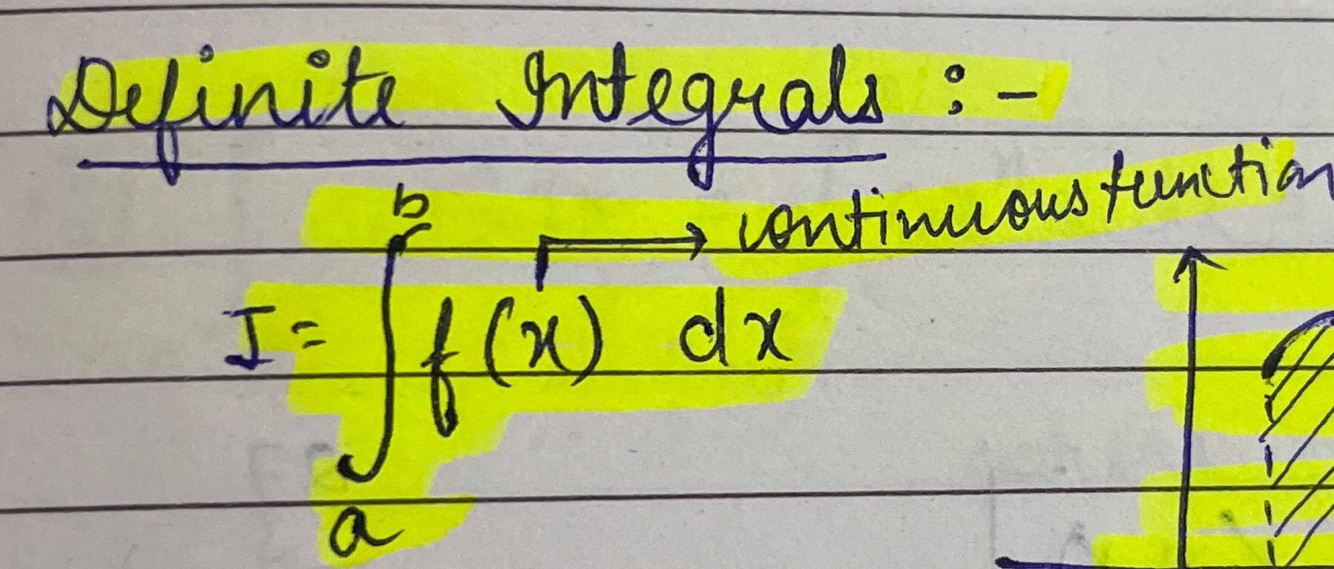 Definite Integrals :-
b
→ continuous function
I = ∫ f(x) dx
a